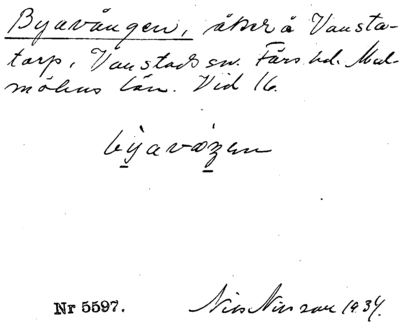 Byavången, åker å Vansta-
torp, Vanstads sn. Färs hd. Mal-
möhus län. Vid 16.
byavoꝫen
Nr 5597.
Nils Nilsson 1934.